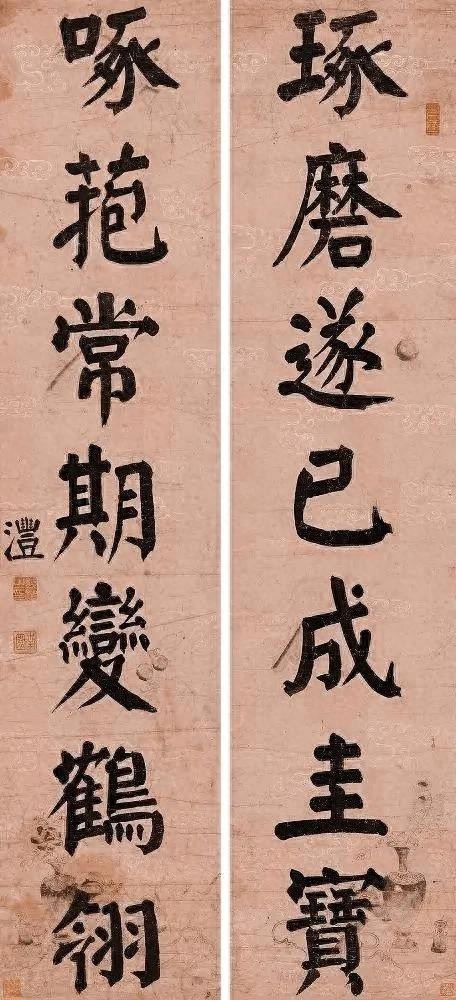 琢磨遂已成圭寶
啄菢常期變鶴翎
灃